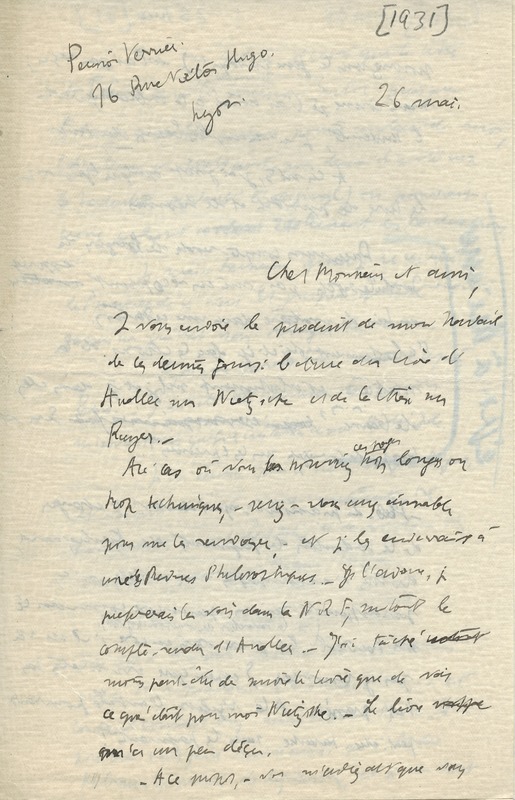 [1931]
Pension Verrier.
16 Rue Victor Hugo.
26 mai.
Cher Monsieur et ami,
Je vous envoie le produit de mon travail
de ces derniers jours : l'étude du livre d'
Andler sur Nietzsche et de la thèse sur
Ruyer. -
Au cas où vous les trouveriez ces pages trop longues ou
trop techniques, - seriez-vous assez aimable
pour me les renvoyer, - et je les enverrais à
une Revue Philosophique. - Je l'avoue, je
préférerais les voir dans la N R F, surtout le
compte-rendu d'Andler. - J'ai tâché
moins peut-être de suivre le livre que de voir
ce qu'était pour moi Nietzsche. - Le livre
m'a un peu déçu.
- A ce propos, - vous que vous